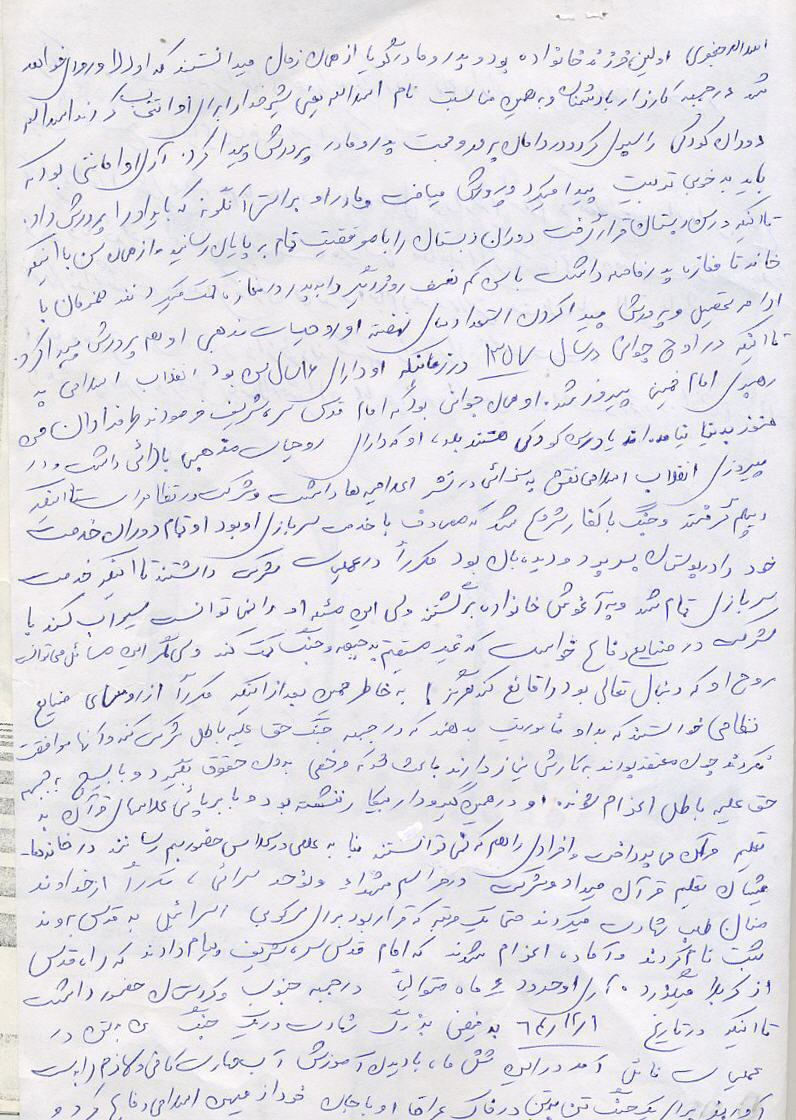 اسدالله اولین فرزند خانواده بود و پدر و مادر گویا از همان زمان میدانستند که او دلاور دوران خواهد
شد در جبهه کارزار با دشمنان و به همین مناسبت نام اسدالله یعنی شیر خدا را برای او انتخاب کردند اسدالله
دوران کودکی را سپری کرد و در دامان پر مهر و محبت پدر و مادر پرورش پیدا کرد. آری او امانتی بود که
باید به خوبی تربیت پیدا میکرد و پرورش میافت و مادر او براستی آنگونه که باید او را پرورش داد.
تا اینکه در سن دبستان قرار گرفت دوران دبستان را با موفقیت تمام به پایان رسانید و از همان سن با اینکه
خانه تا مغازه پدر فاصله داشت با سن کم نصف روز دیگر را به پدر در مغازه کمک میکردند همزمان با
ادامه تحصیل و پرورش پیدا کردن استعدادهای نهفته او روحیات مذهبی او هم پرورش پیدا کرد.
تا اینکه در اوج جوانی در سال ۱۳۵۷ در زمانیکه او دارای ۱۶ سال سن بود انقلاب اسلامی به
رهبری امام خمینی پیروز شد. او همان جوانی بود که امام قدس سره شریف فرمودند طرفداران من
هنوز بدنیا نیامده‌اند یا در سن کودکی هستند بله، او که دارای روحیات مذهبی بالائی داشت و در
پیروزی انقلاب اسلامی نقش به سزائی در نشر اعلامیه‌ها داشت و شرکت در تظاهرات تا اینکه
دیپلم گرفتند و جنگ با کفار شروع شد که مصادف با خدمت سربازی او بود او تمام دوران خدمت
خود را در پوستش سپر پر و دیده‌بان بود مکرراً در عملیات شرکت داشتند تا اینکه خدمت
سربازی تمام شد و به آغوش خانواده برگشتند ولی این مسئله او را نمی توانست سیراب کند با
شرکت در صنایع دفاع خواست که غیر مستقیم به جبهه و جنگ کمک کند ولی مگر این مسائل می‌توانست
روح او که دنبال تعالی بود را قانع کند هرگز! به خاطر همین بعد از اینکه مکرراً از رؤسای صنایع
نظامی خواستند که به او مأموریت بدهند که در جبهه جنگ حق علیه باطل شرکت کند و آنها موافقت
نکردند چون معتقد بودند به کارش نیاز دارند باعث شد که مرخصی بدون حقوق بگیرد و با بسیج به جبهه
حق علیه باطل اعزام شوند. او در همین گیرودار بیکار ننشسته بود و با برپائی کلاسهای قرآن به
تعلیم قرآن می پرداخت و افرادی را هم که نمی توانستند بنا به عللی در کلاس حضور بهم رسانند در خانه‌ها-
یشان تعلیم قرآن میداد و شرکت در مراسم شهداء و نوحه سرائی، مکرراً از خداوند
منان طلب شهادت میکردند حتی یک مرتبه که قرار بود برای سرکوبی اسرائیل به قدس بروند
ثبت نام کردند و آماده اعزام شدند که امام قدس سره شریف پیام دادند که راه قدس
از کربلا میگذرد. آری او حدود ۶ ماه متوالیاً در جبهه جنوب و کردستان حضور داشت
تا اینکه در تاریخ ۶۴/۱۲/۱ به فیض بزرگ شهادت در یک جنگ تن بتن در
عملیات نائل آمد در این شش ماه، با دیدن آموزش آب مهارت کافی و لازم را بدست
برای یک جنگ تن بتن در فاو عراق او با جان خود از میهن اسلامی دفاع کرد و